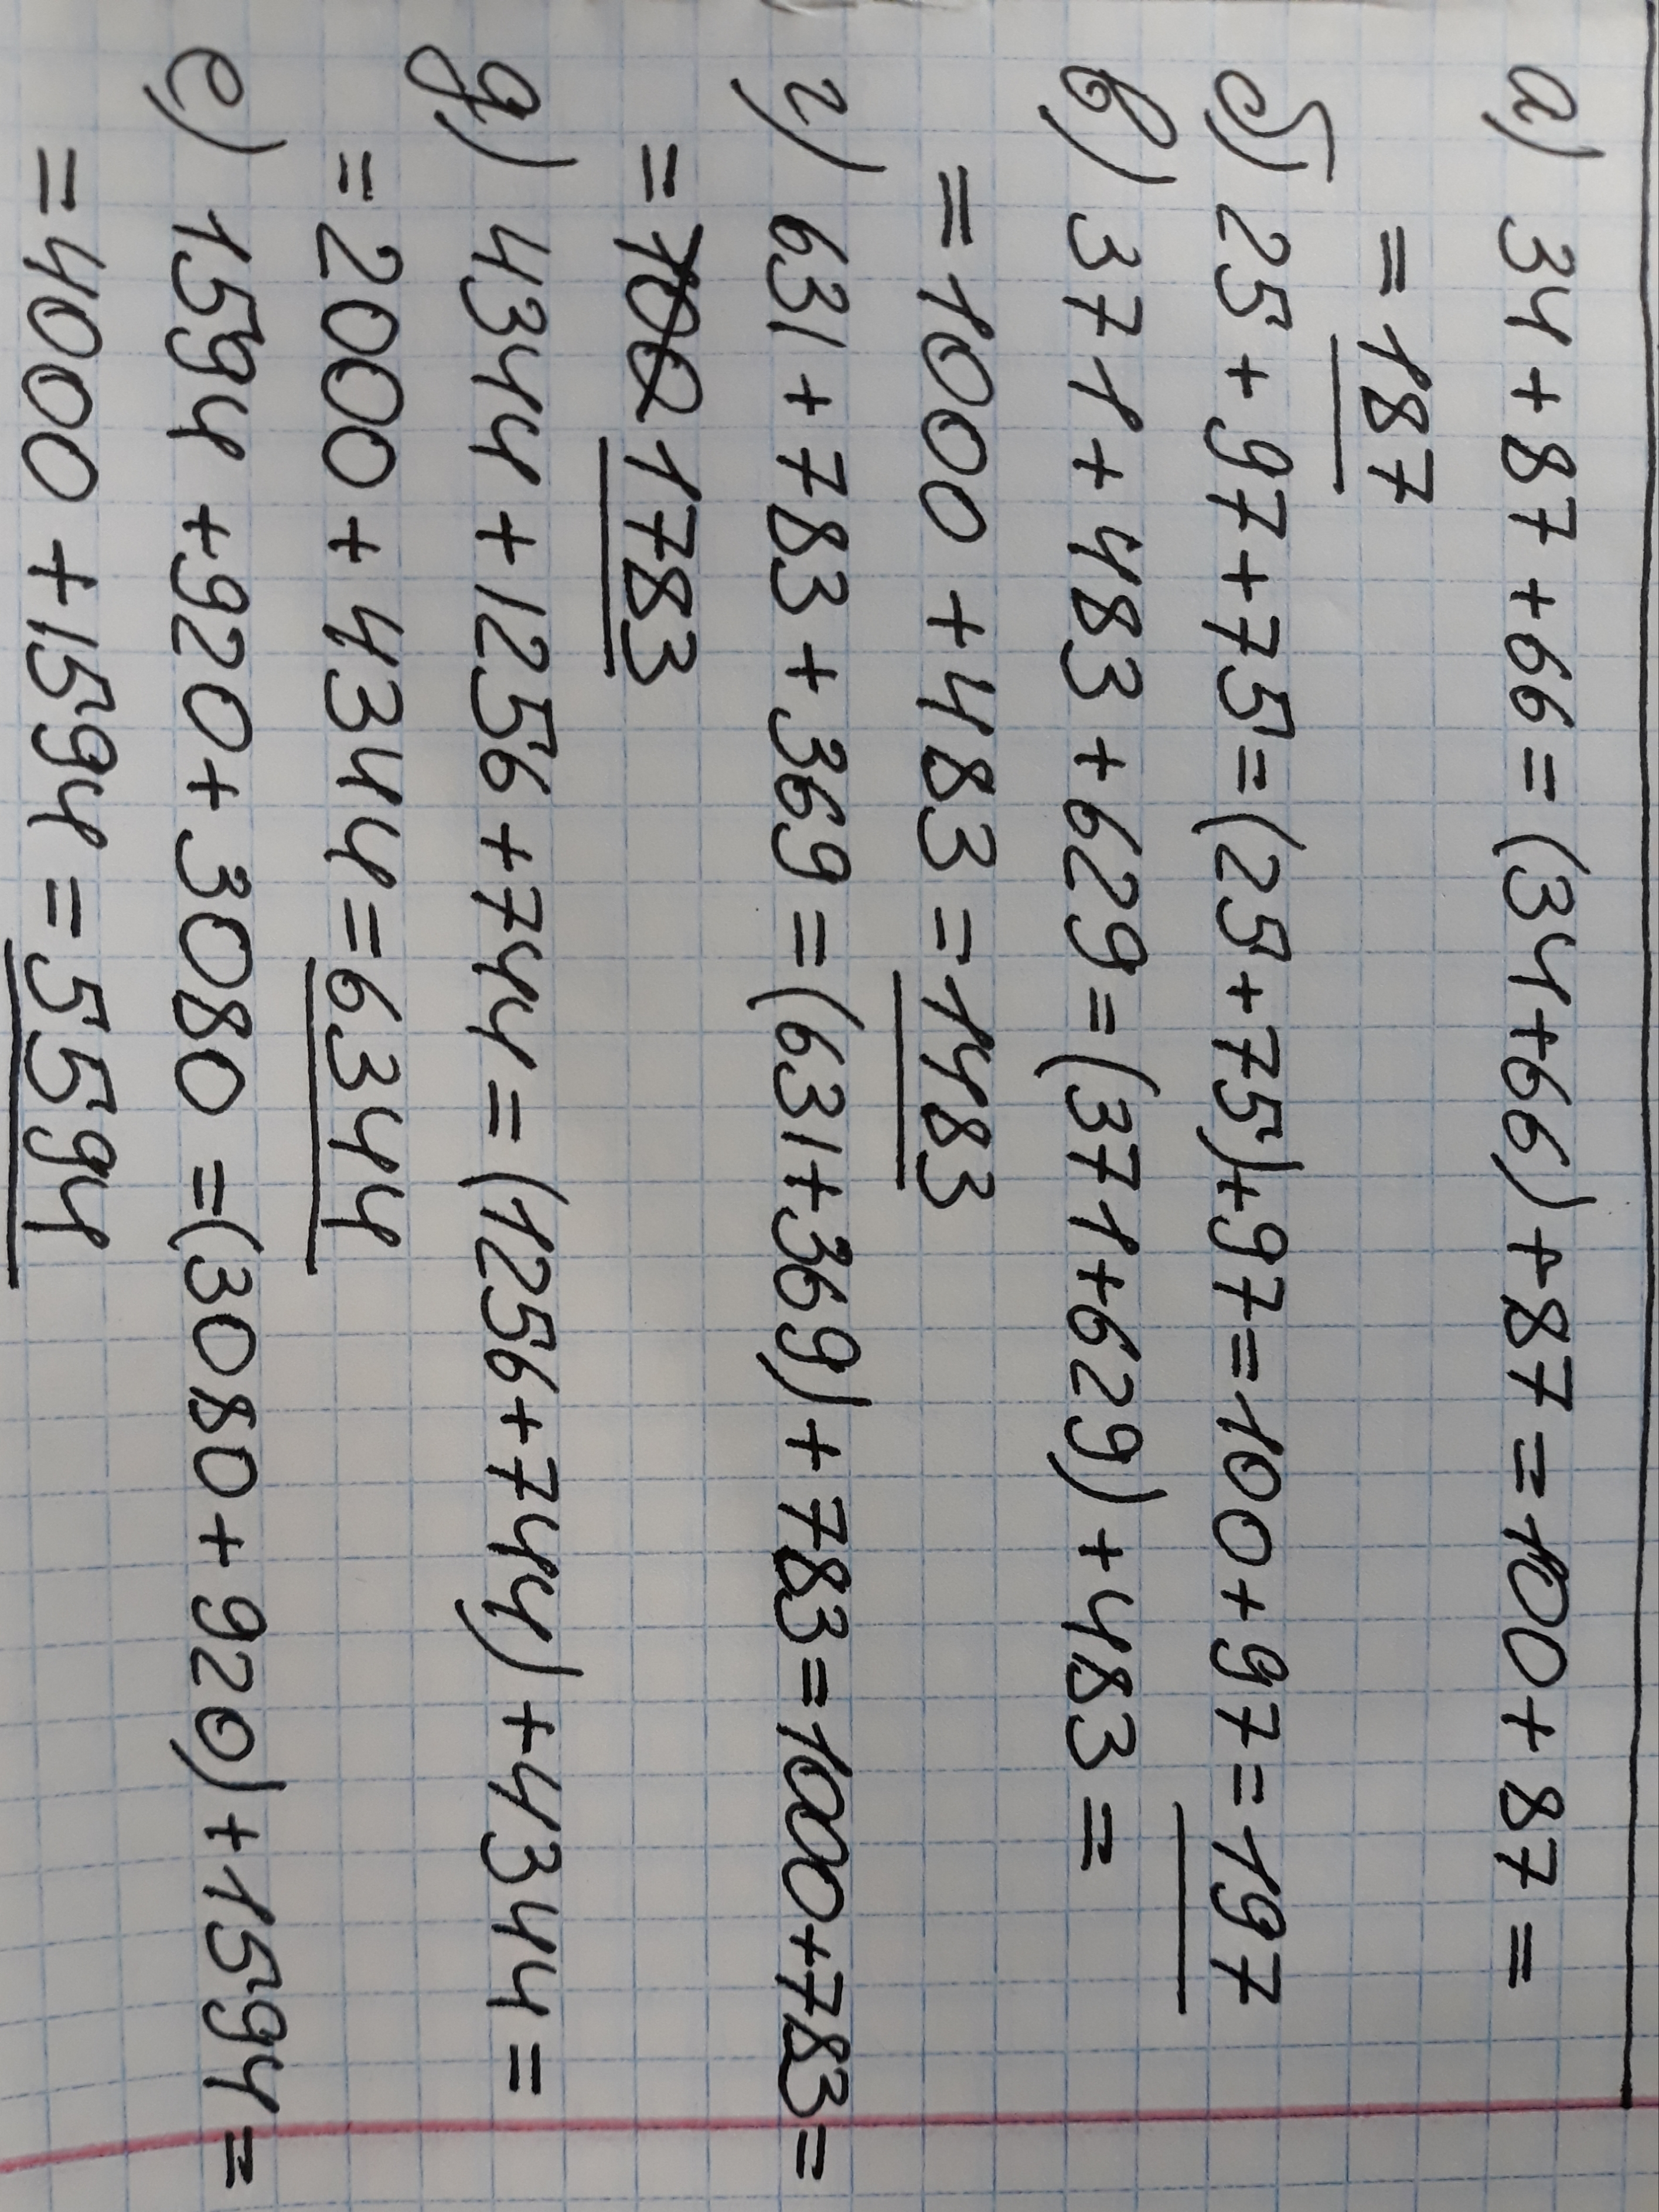 а) 34+87+66=(34+66)+87=100+87=
=187
б) 25+97+75=(25+75)+97=100+97=197
в) 371+483+629=(371+629)+483=
=1000+483=1483
г) 631+783+369=(631+369)+783=1000+783=
=1783
д) 4344+1256+744=(1256+744)+4344=
=2000+4344=6344
е) 1594+920+3080=(3080+920)+1594=
=4000+1594=5594